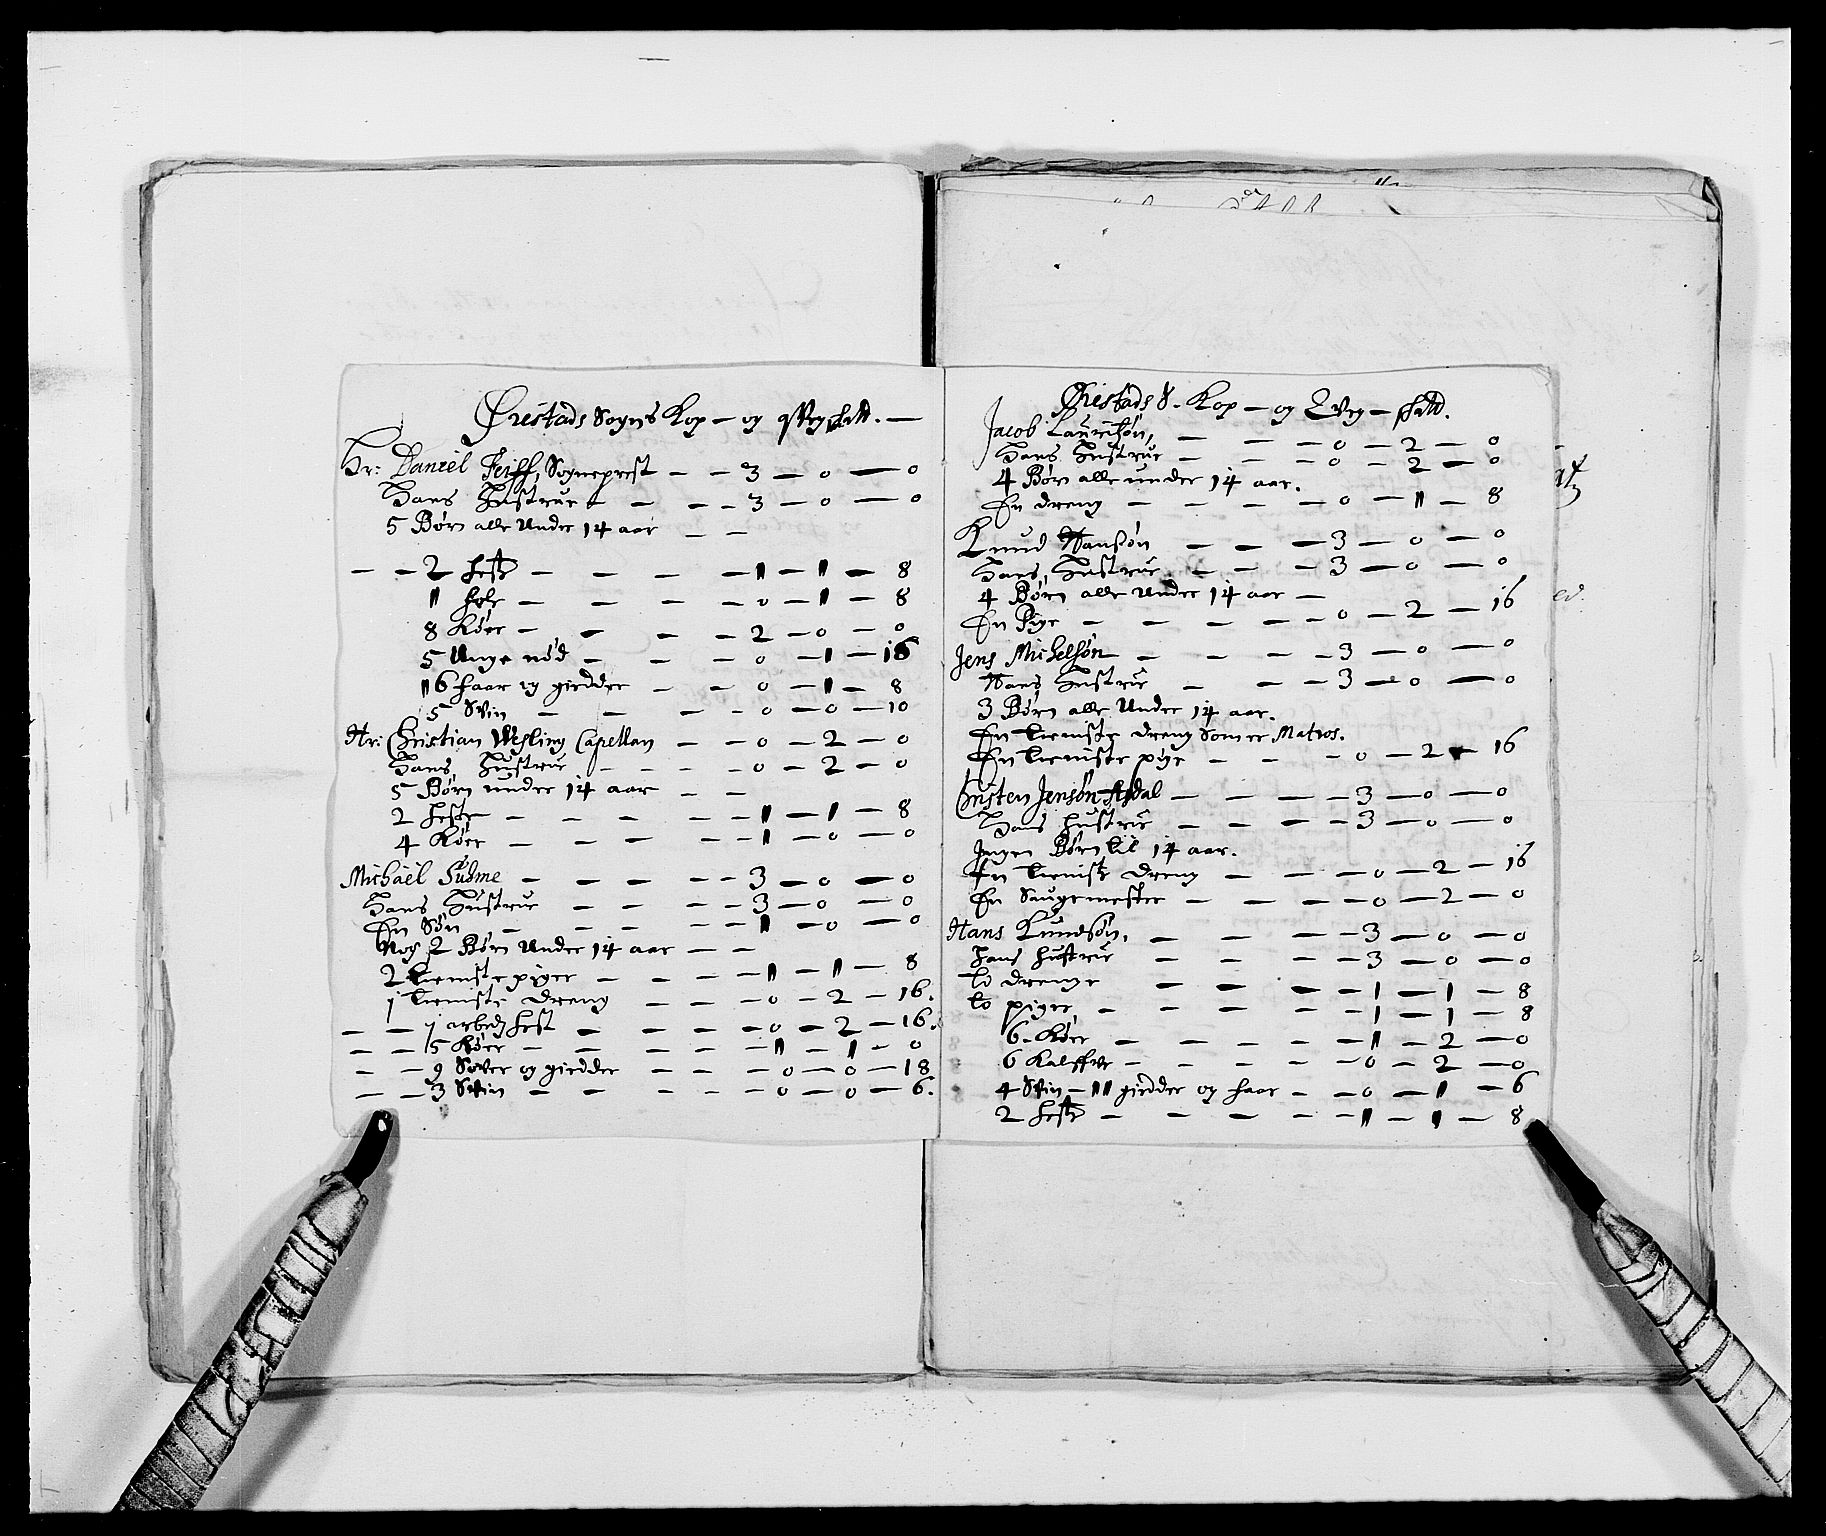 Øxestads Sogns Kop - og qveg skatt. -
Hr: Daniel Sogneprest - - 3 - 0 - 0
Hans Hustrue - - - 3 - 0 - 0
5 Børn alle Under 14 aar - -
- - 2 heste - - - - 1 - 1 - 8
1 fole - - - - 0 - 1 - 8
8 Køer - - - - 2 - 0 - 0
5 Unge nød - - - 0 - 1 - 16
16 faar og giedder - - 0 - 1 - 8
5 Svin - - - - 0 - 0 - 10
Hr: Christian Wesling Capellan - - 0 - 2 - 0
Hans Hustrue - - - - 0 - 2 - 0
5 Børn under 14 aar - -
2 heste - - - - - 1 - 1 - 8
4 Køer - - - - 1 - 0 - 0
Michael Suhme - - - - 3 - 0 - 0
Hans Hustrue - - - - 3 - 0 - 0
En Søn - - - - 1 - 0 - 0
Nog 2 Børn Under 14 aar - -
2 tieniste piger - - - 1 - 1 - 8
1 tieniste dreng - - - 0 - 2 - 16.
- - 1 arbeds hest - - - - 0 - 2 - 16.
- - 5 Køer - - - - 1 - 1 - 0
- - 9 Sover og giedder - - - 0 - 0 - 18
- - 3 Svin - - - - - 0 - 0 - 6.
Øxestads S. Kop - og Qveg - skatt.
Jacob Lauridsøn, - - - 0 - 2 - 0
Hans Hustrue - - - 0 - 2 - 0
4 Børn alle under 14 aar.
En dreng - - - - 0 - 1 - 8
Knud Hansøn - - - 3 - 0 - 0
Hans Hustrue - - - 3 - 0 - 0
4 Børn alle Under 14 aar -
En Pige - - - - - 0 - 2 - 16
Jens Michelsøn - - - - 3 - 0 - 0
Hans Hustrue - - - 3 - 0 - 0
3 Børn alle Under 14 aar.
En tieniste dreng Som er Matros.
En tieniste pige - - - 0 - 2 - 16
Christen Jensøn Asdal - - - - 3 - 0 - 0
Hans hustrue - - - - 3 - 0 - 0
Ingen Børn til 14 aar.
En tieniste dreng - - - 0 - 2 - 16
En Saugemester - - - - 0 - 2 - 0
Hans Knudsøn, - - - - 3 - 0 - 0
Hans hustrue - - - - 3 - 0 - 0
to drenge - - - - 1 - 1 - 8
to piger, - - - - 1 - 1 - 8
6 - Køer - - - - - 1 - 2 - 0
6 Kalffve - - - - 0 - 2 - 0
4 Svin - 11 giedder og faar - - 0 - 1 - 6
2 heste - - - - - 1 - 1 - 8